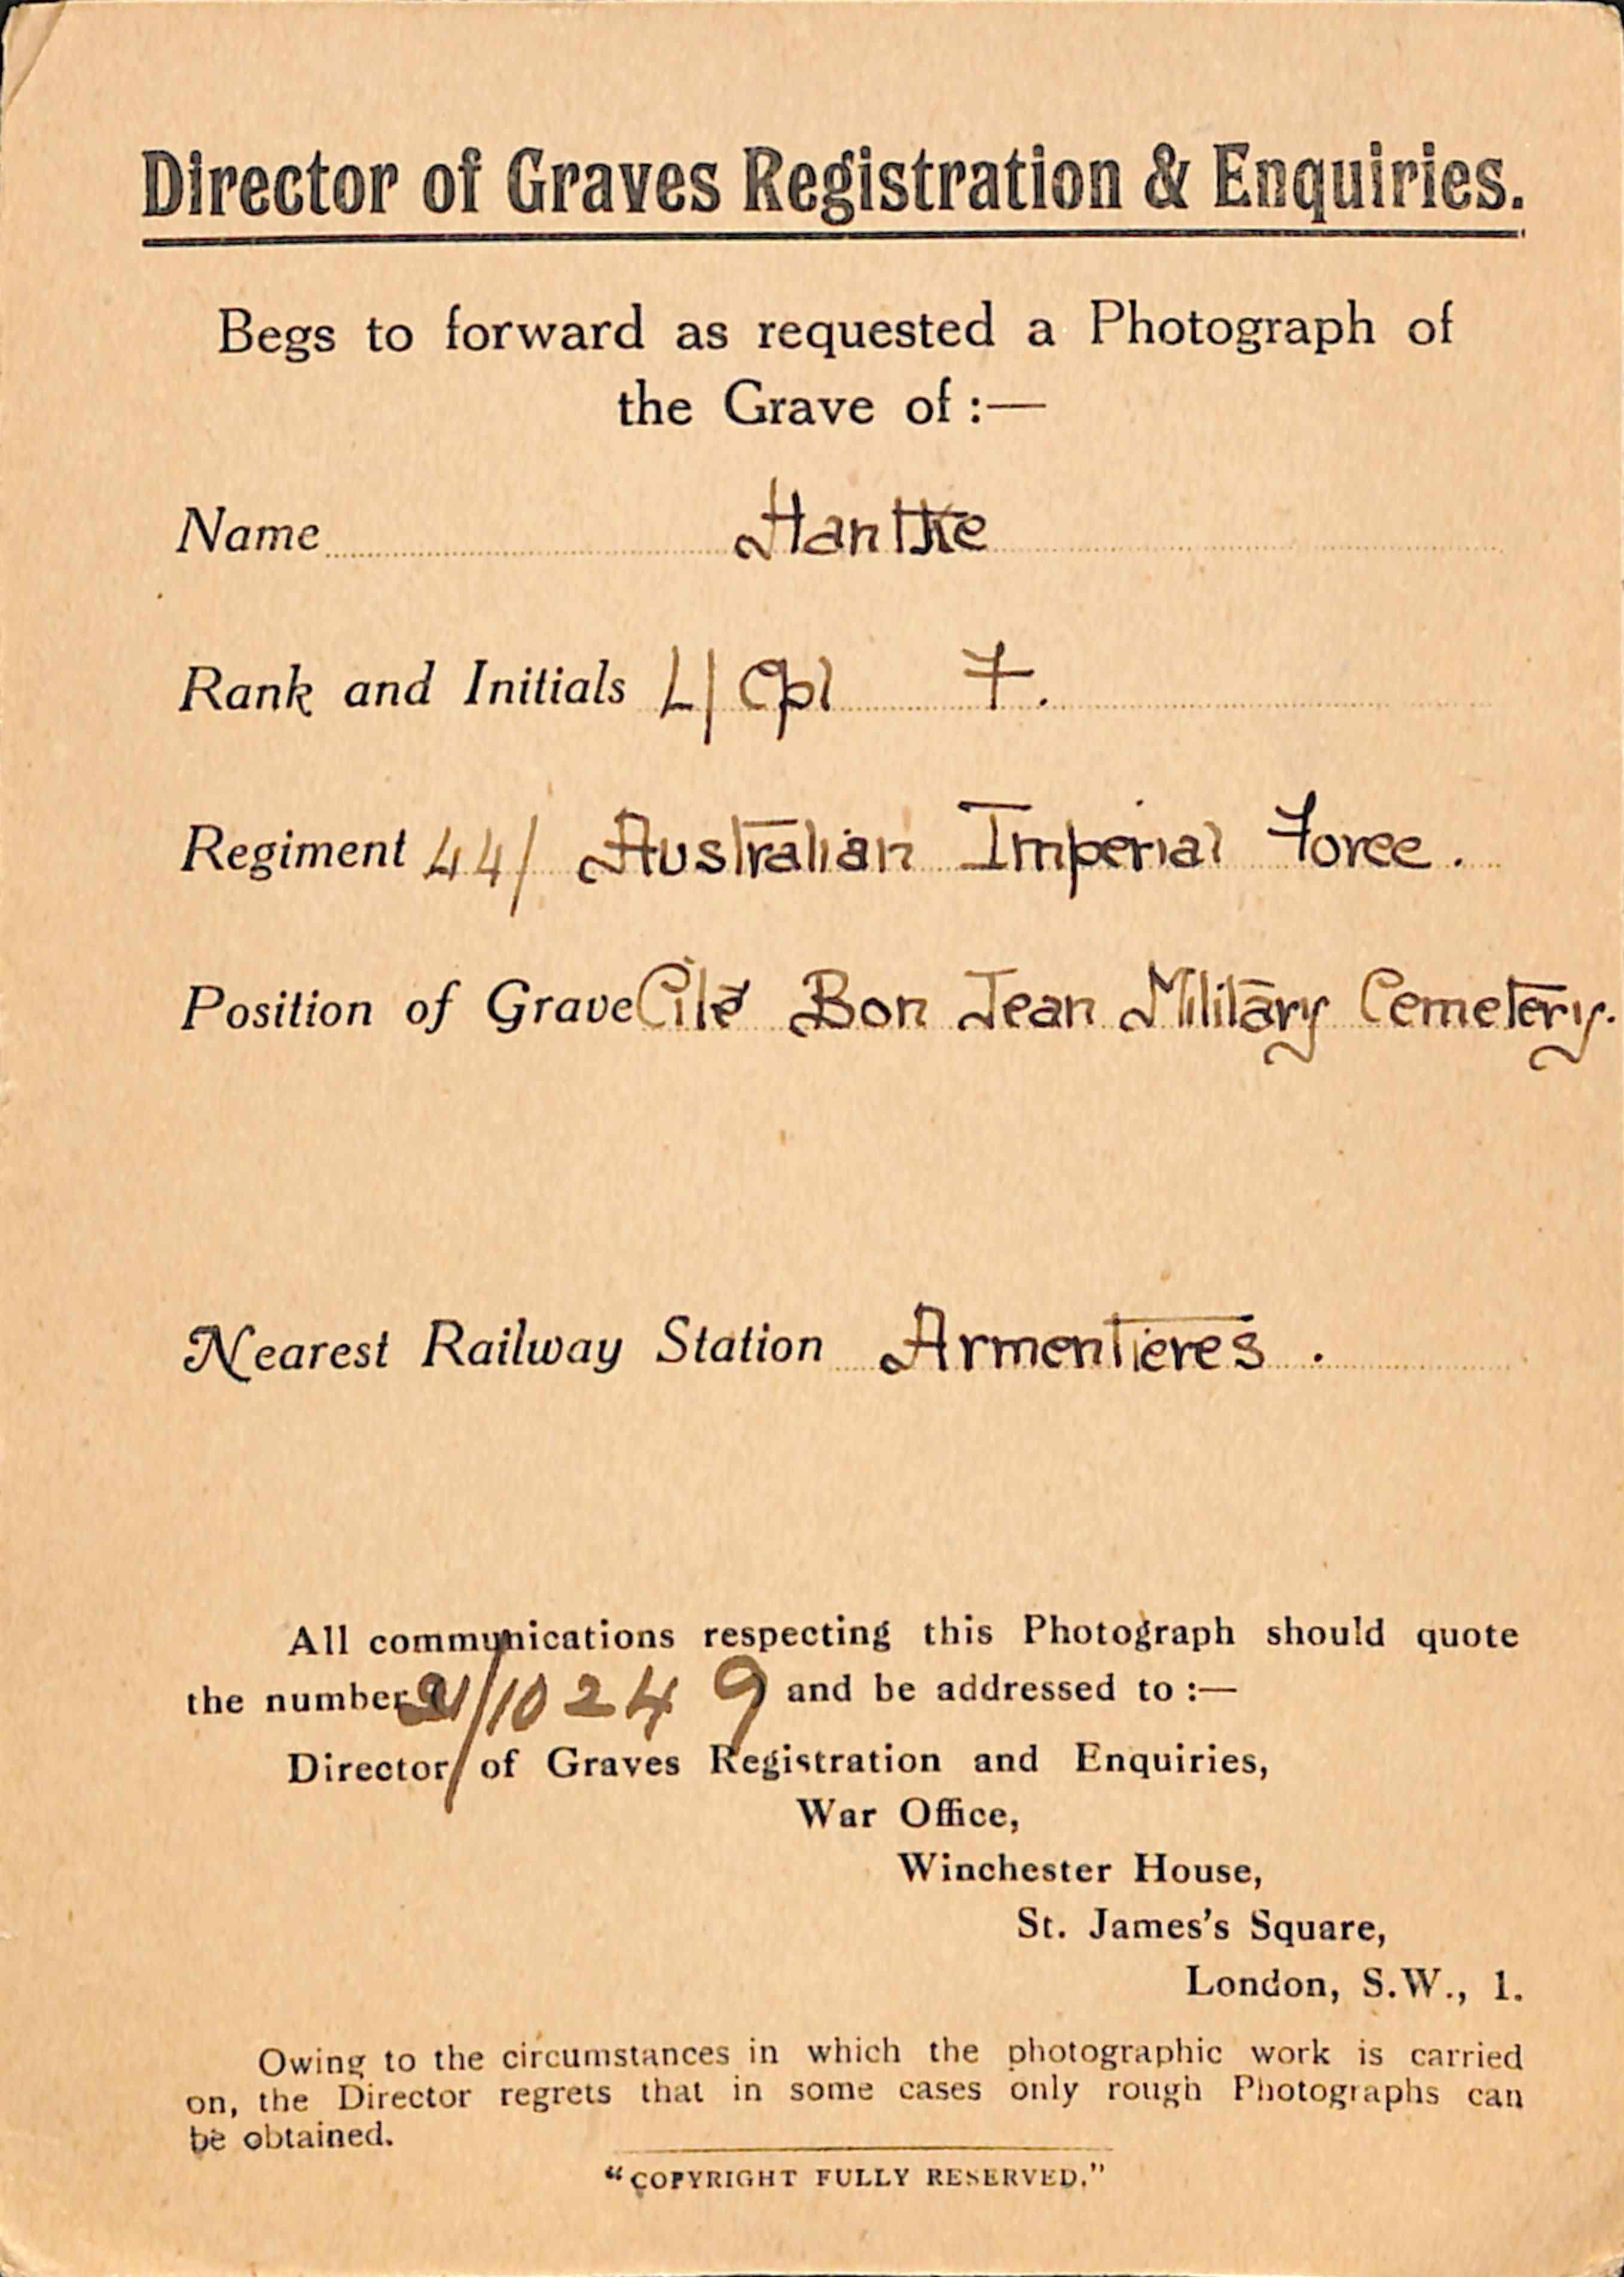 Director of Graves Registration & Enquiries.
Begs to forward as requested a Photograph of
the Grave of :—
Name Hantke
Rank and Initials L/Cpl F.
Regiment 44/ Australian Imperial Force.
Position of Grave Cité Bon Jean Military Cemetery.
Nearest Railway Station Armentieres.
All communications respecting this Photograph should quote
the number /10249 and be addressed to :—
Director of Graves Registration and Enquiries,
War Office,
Winchester House,
St. James's Square,
London, S.W., 1.
Owing to the circumstances in which the photographic work is carried
on, the Director regrets that in some cases only rough Photographs can
be obtained.
"COPYRIGHT FULLY RESERVED."